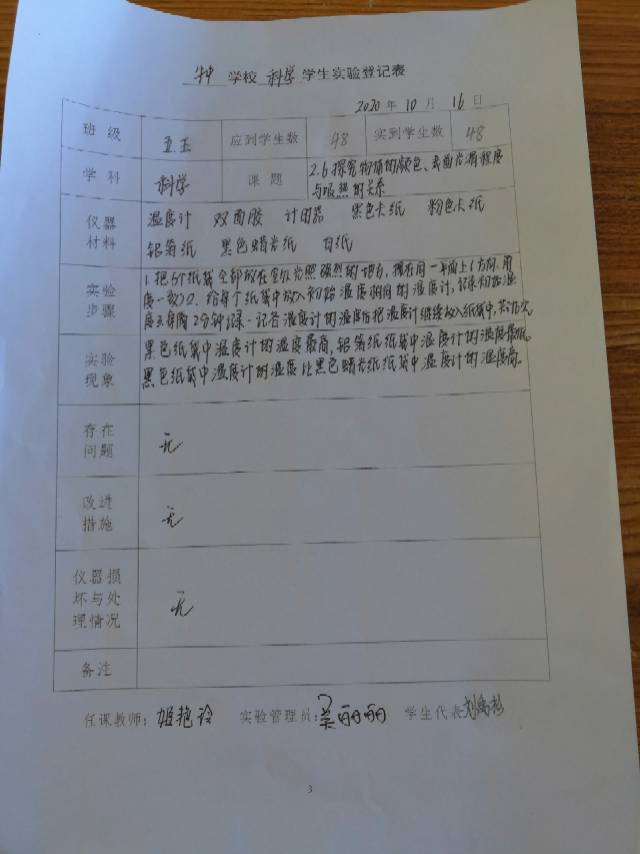 学校 科学 学生实验登记表
2020 年 10 月 16 日
班级 五五 应到学生数 48 实到学生数 48
学科 科学 课题 2.6探究物体的颜色、表面光滑程度
与吸热的关系
仪器 温度计 双面胶 计时器 黑色卡纸 粉色卡纸
材料 铝箔纸 黑色蜡光纸 白纸
1. 把6个纸袋全部放在室外光照强烈的地方,摆在同一平面上(方向、角
实验 度一致)2. 给每个纸袋中放入初始温度相同的温度计,记录初始温
步骤 度3.每隔2分钟记录一记各温度计的温度后把温度计继续放入纸袋中,
实验 黑色纸袋中温度计的温度最高,铝箔纸纸袋中温度计的温度最低。
现象 黑色纸袋中温度计的温度比黑色蜡光纸纸袋中温度计的温度高。
存在
问题 无
改进
措施 无
仪器损
坏与处 无
理情况
备注
任课教师: 姬艳玲 实验管理员: 吴丽丽 学生代表 刘
3